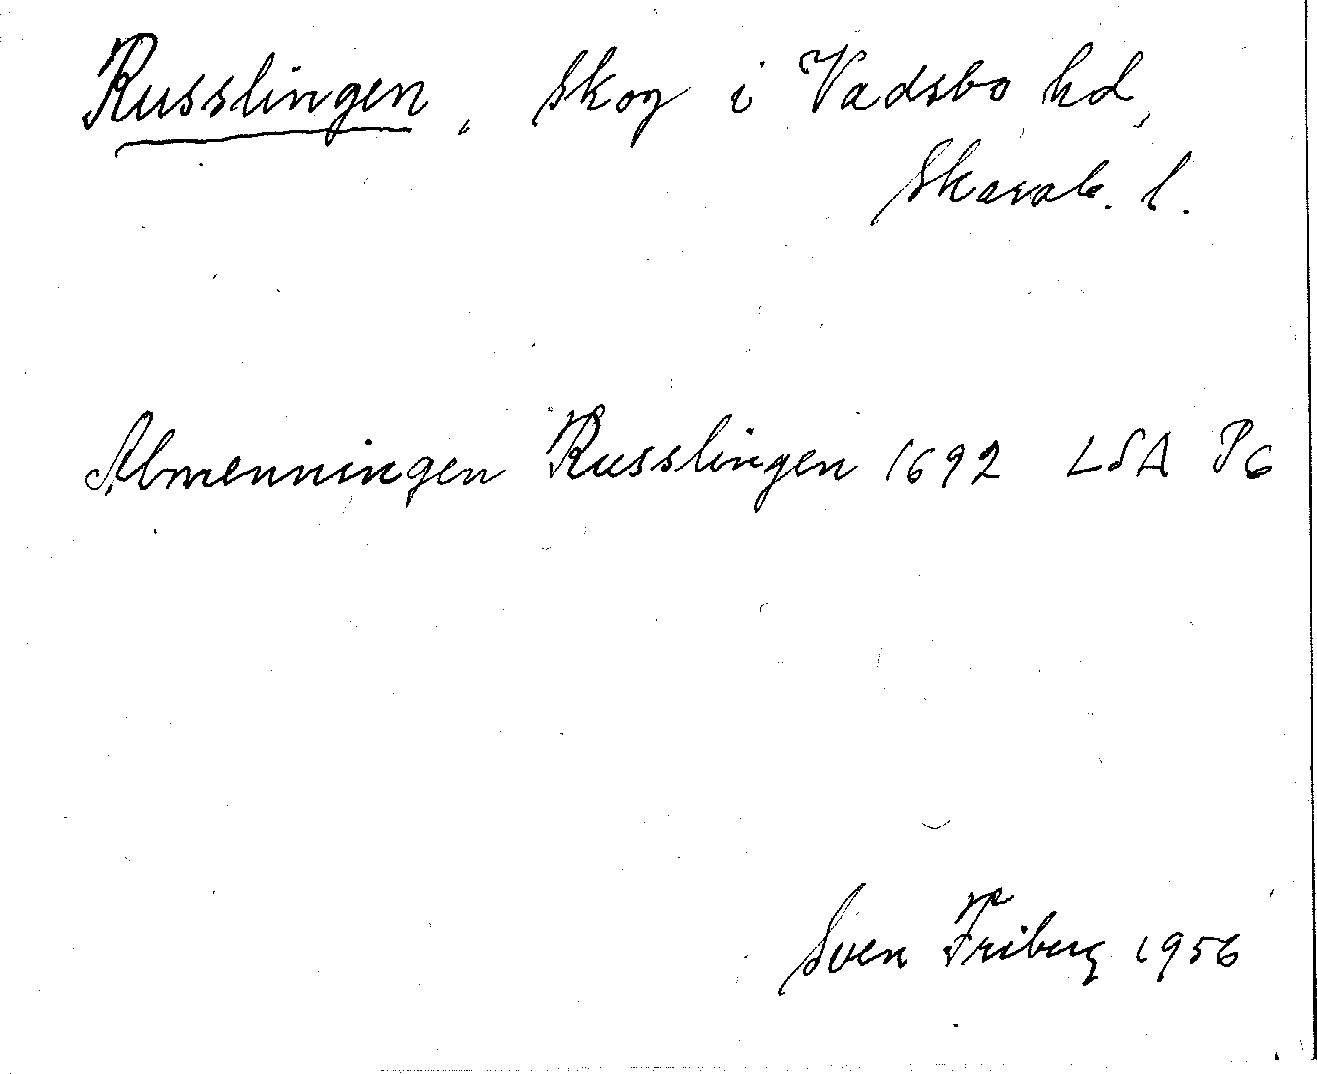 Russlingen, Skog i Vadsbo hd,
Skarab. l.
Almenningen Russlingen 1692 LSA P6
Sven Friberg 1956